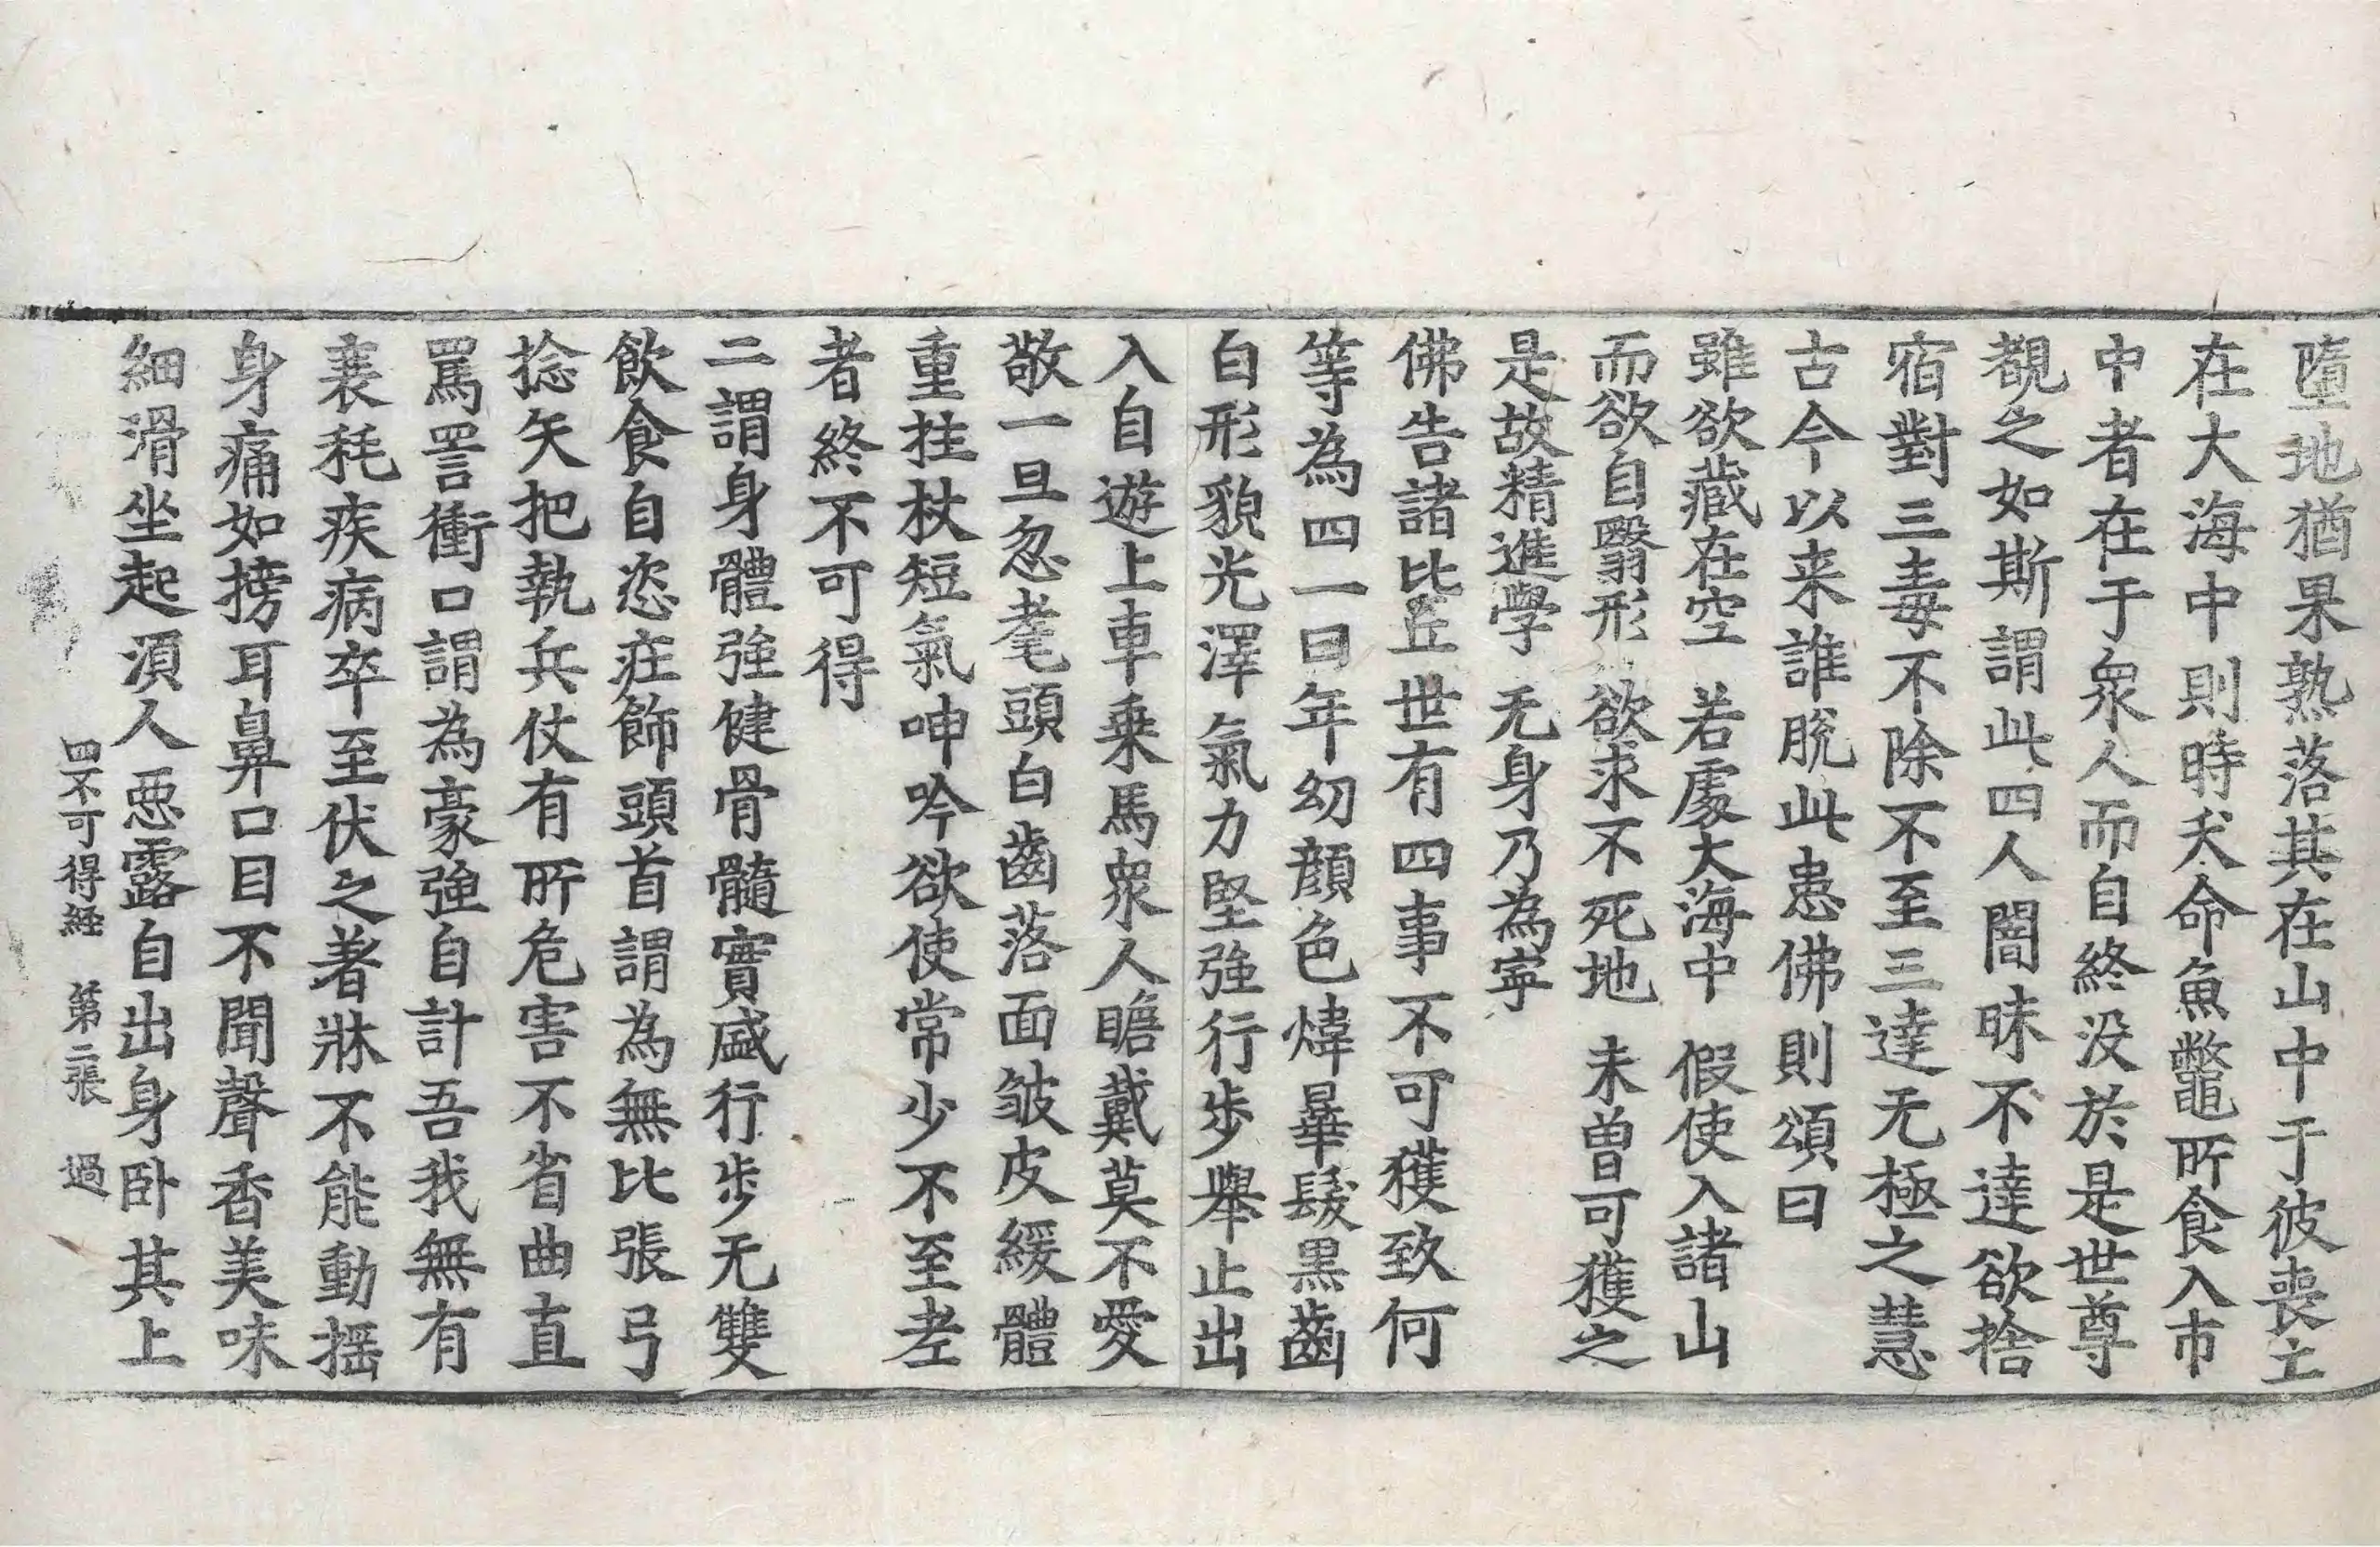 墮地猶果熟落其在山中于彼喪亡
在大海中則時夭命魚鼈所食入市
中者在于衆人而自終没於是世尊
覩之如斯謂此四人闇昧不達欲捨
宿對三毒不除不至三達无極之慧
古今以来誰脫此患佛則頌曰
雖欲藏在空　若處大海中　假使入諸山
而欲自翳形　欲求不死地　未曾可獲之
是故精進學　无身乃為寧
佛告諸比丘世有四事不可獲致何
等為四一曰年幼顏色煒曄髮黒齒
白形貌光澤氣力堅強行步舉止出
入自遊上車乗馬衆人瞻戴莫不愛
敬一旦忽耄頭白齒落面皱皮緩體
重拄杖短氣呻吟欲使常少不至老
者終不可得
二謂身體強健骨髓實盛行步无雙
飲食自恣莊飾頭首謂為無比張弓
捻矢把執兵仗有所危害不省曲直
罵詈衝口謂為豪強自計吾我無有
衰耗疾病卒至伏之著牀不能動摇
身痛如搒耳鼻口目不聞聲香美味
細滑坐起湏人惡露自出身卧其上
四不可得経　第二張　過